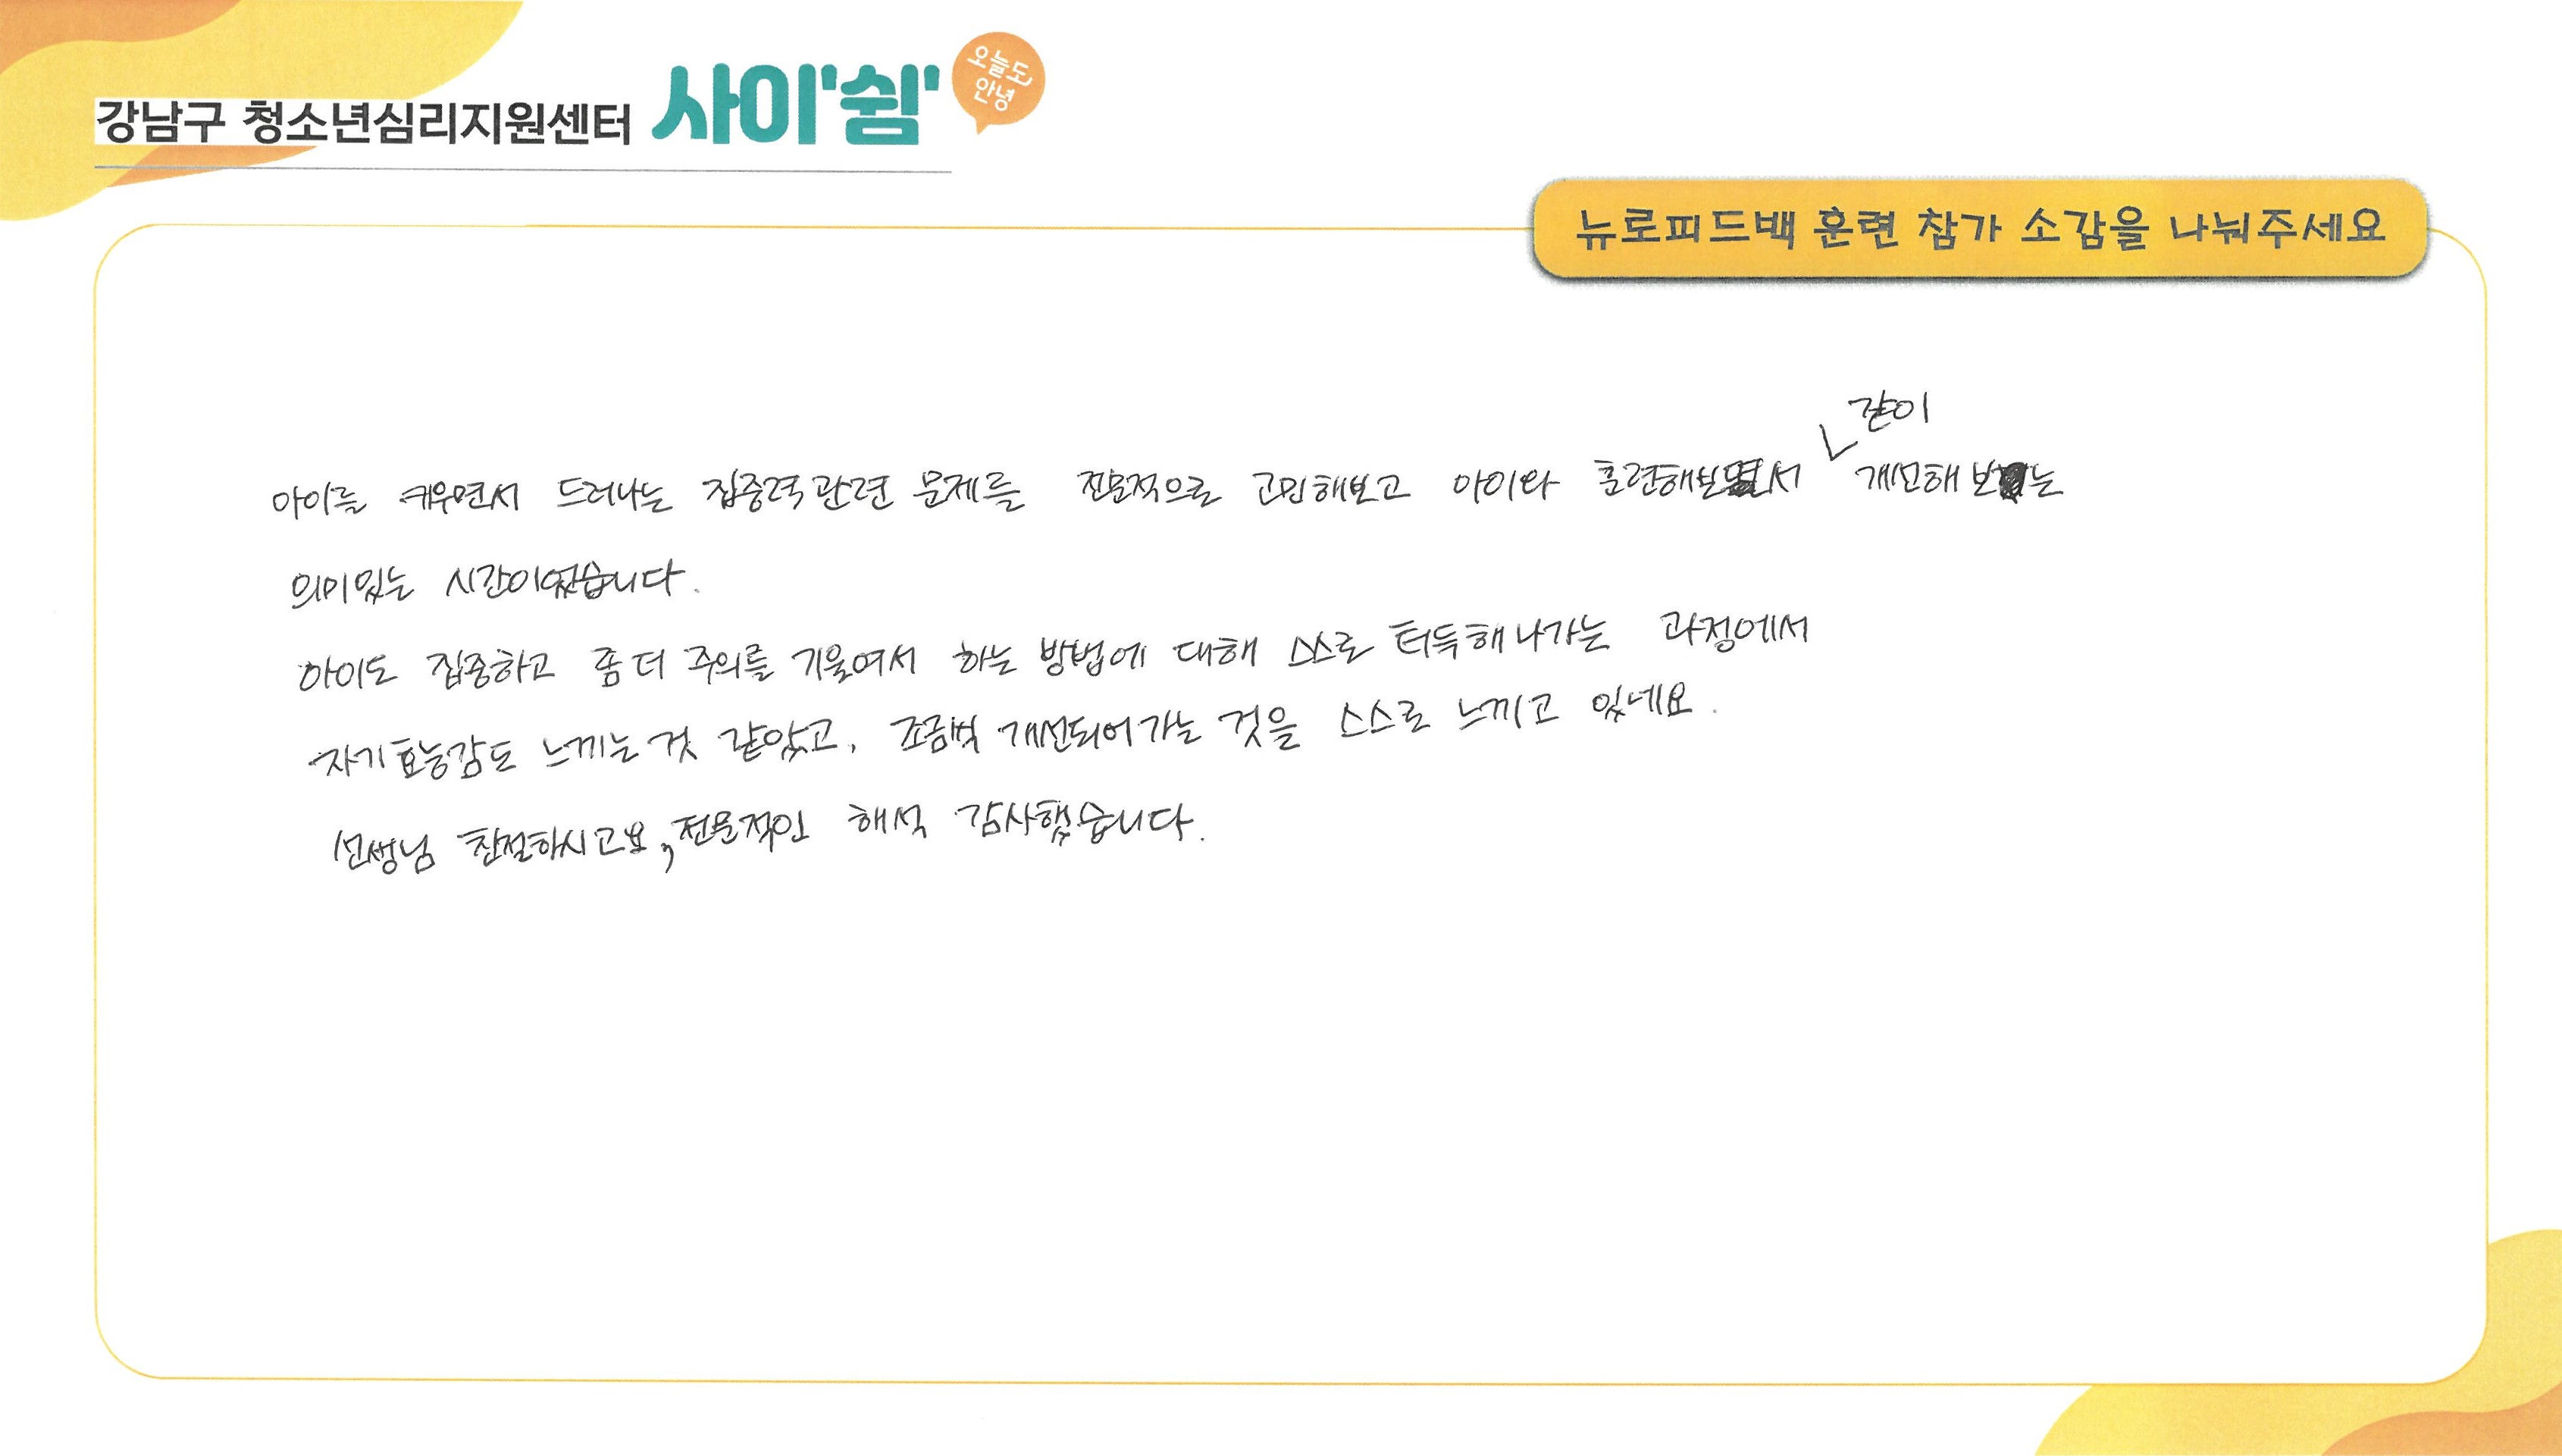 강남구 청소년심리지원센터 사이'쉼' 오늘도 안녕
뉴로피드백 훈련 참가 소감을 나눠주세요
같이
아이를 키우면서 드러나는 집중력관련 문제를 전문적으로 고민해보고 아이와 훈련해보면서 개선해 보는
의미있는 시간이었습니다.
아이도 집중하고 좀 더 주의를 기울여서 하는 방법에 대해 스스로 터득해나가는 과정에서
자기효능감도 느끼는 것 같았고, 조금씩 개선되어가는 것을 스스로 느끼고 있네요.
선생님 친절하시고요, 전문적인 해석 감사했습니다.